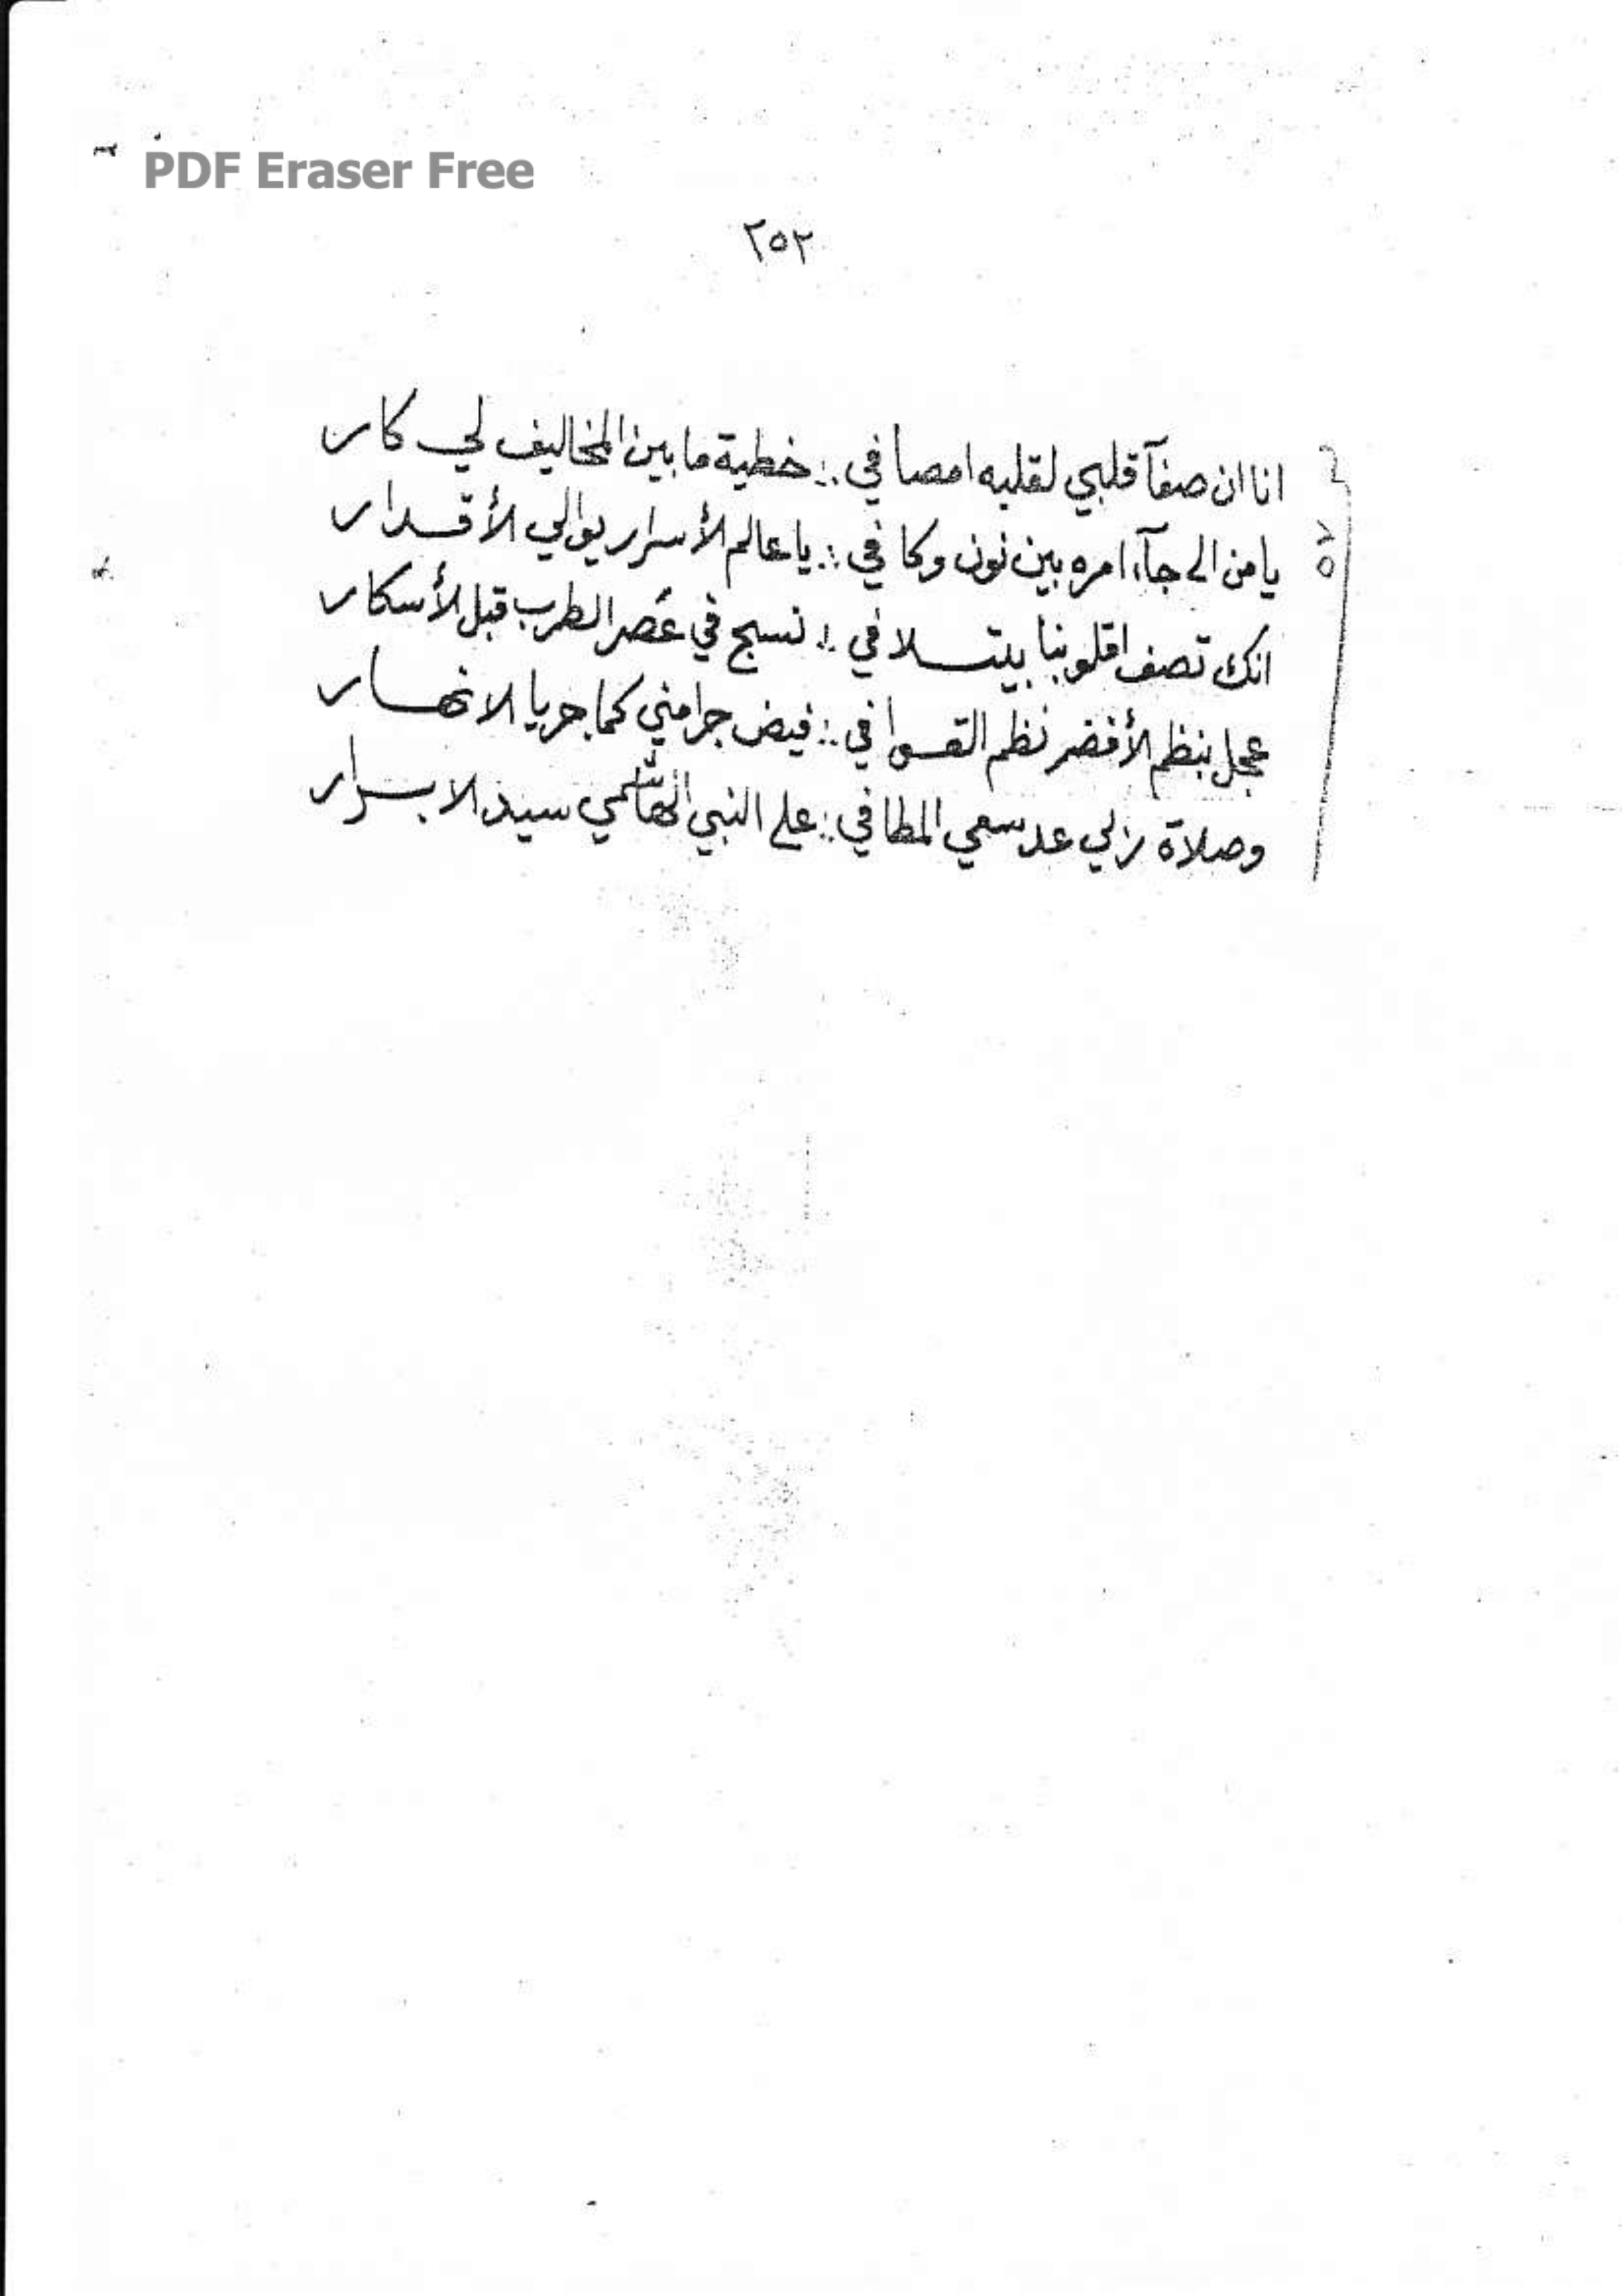 PDF Eraser Free
٢٥٢
انا ان صفآ قلبي لقلبه امصافي :: خطية ما بين المخاليف لي كار
يا من الى جآء امره بين نون وكافي :: يا عالم الأسرار يوالي الأقدار
انك تصف اقلوبنا بيتلافي :: نسبح في عَصر الطرب قبل الأسكار
عجل بنظم الأفضر نظم القوافي :: فيض جرا مني كما جريا الانهار
وصلاة ربي عد سعي المطافي :: على النبي الهاشمي سيد الابرار